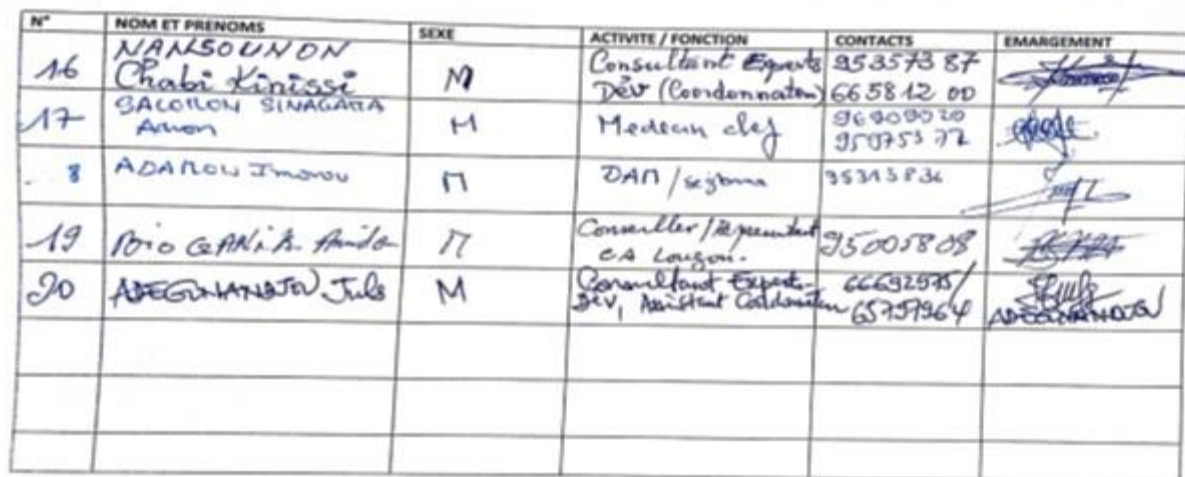 N° NOM ET PRENOMS SEXE ACTIVITE / FONCTION CONTACTS EMARGEMENT
16 NANSOUNON Chabi Kinissi M Consultant Experts Dév (Coordonnateur) 95357387 66581200
17 SALOMON SINAGARA M Medecin chef 96909020
8 ADAMOU Imorou M DAM / 95313836
19 Bio M Conseiller / CA 95005808
20 ADEGNANDJOU Jules M Consultant Expert- Dev, Assistant Coordonnateur 66692975/ 65797964 ADEGNANDJOU